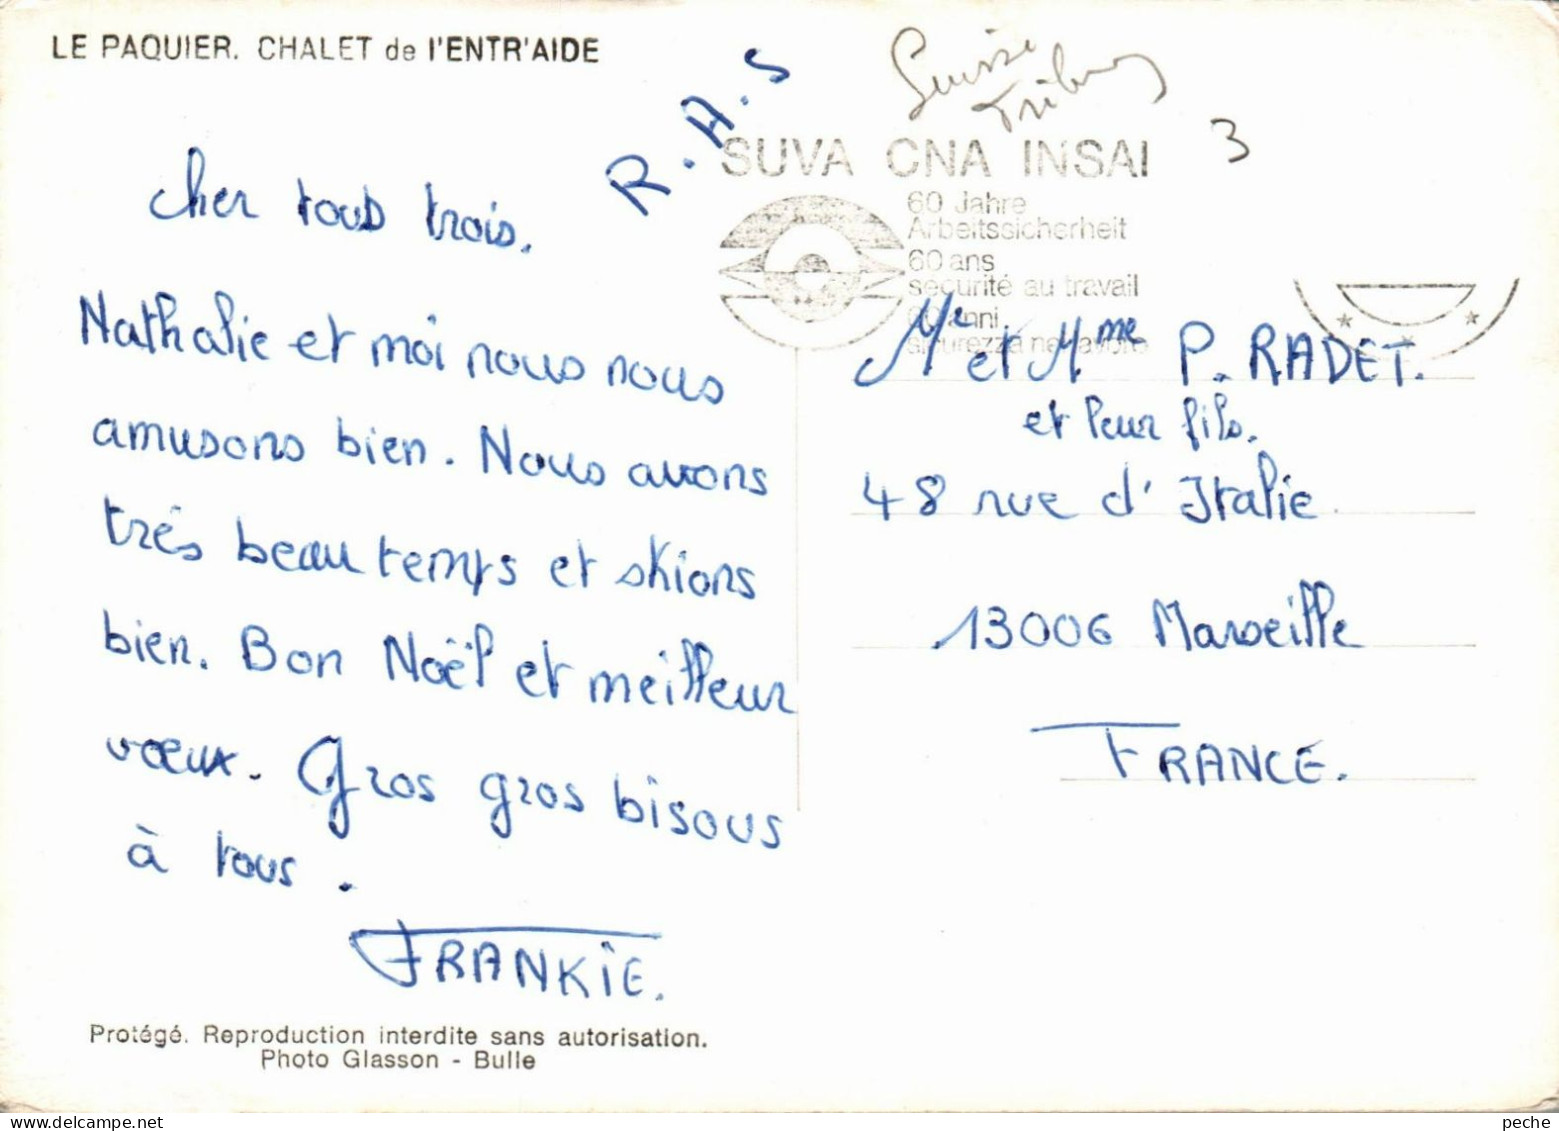 LE PAQUIER. CHALET de l'ENTR'AIDE
R.A.S
Suisse
3
SUVA CNA INSAI
60 Jahre
Arbeitssicherheit
60 ans
sécurité au travail
60 anni
sicurezza nel lavoro
cher tous trois.
Nathalie et moi nous nous
amusons bien. Nous avons
très beau temps et skions
bien. Bon Noël et meilleur
vœux. Gros gros bisous
à tous.
FRANKIE.
Mr et Mme P. RADET.
et leur fils.
48 rue d'Italie
13006 Marseille
FRANCE.
Protégé. Reproduction interdite sans autorisation.
Photo Glasson - Bulle
peche